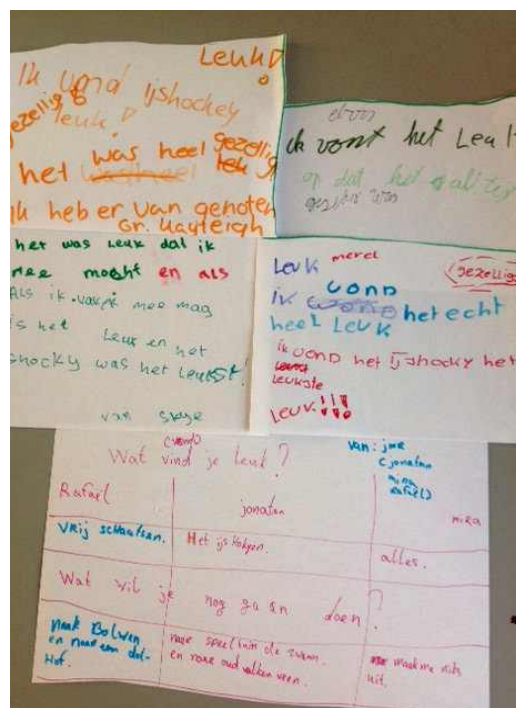 Leuk
Ik vond ijshockey
gezellig &
leuk
het was heel gezellig
leuk
Ik heb er van genoten
Gr. Kayleigh
ik vont het Leuk
op dat het altij
gezellig was
het was Leuk dat ik
mee moght en als
ALS ik vaak mee mag
is het Leuk en het
shocky was het Leukst!
van skye
Leuk merel gezellig
ik vond het echt
heel Leuk
ik vond het ijshocky het
Leukste
Leuk!!!
Wat vind je leuk?
van: jme
(jonatan
mira
Rafaël)
Rafaël jonatan mira
Vrij schaatsen. Het ijs hokyen. alles.
Wat wil je nog ga an doen?
naar speeltuin de zwaan.
en naar oud valkenveen.
maakt me niks
uit.